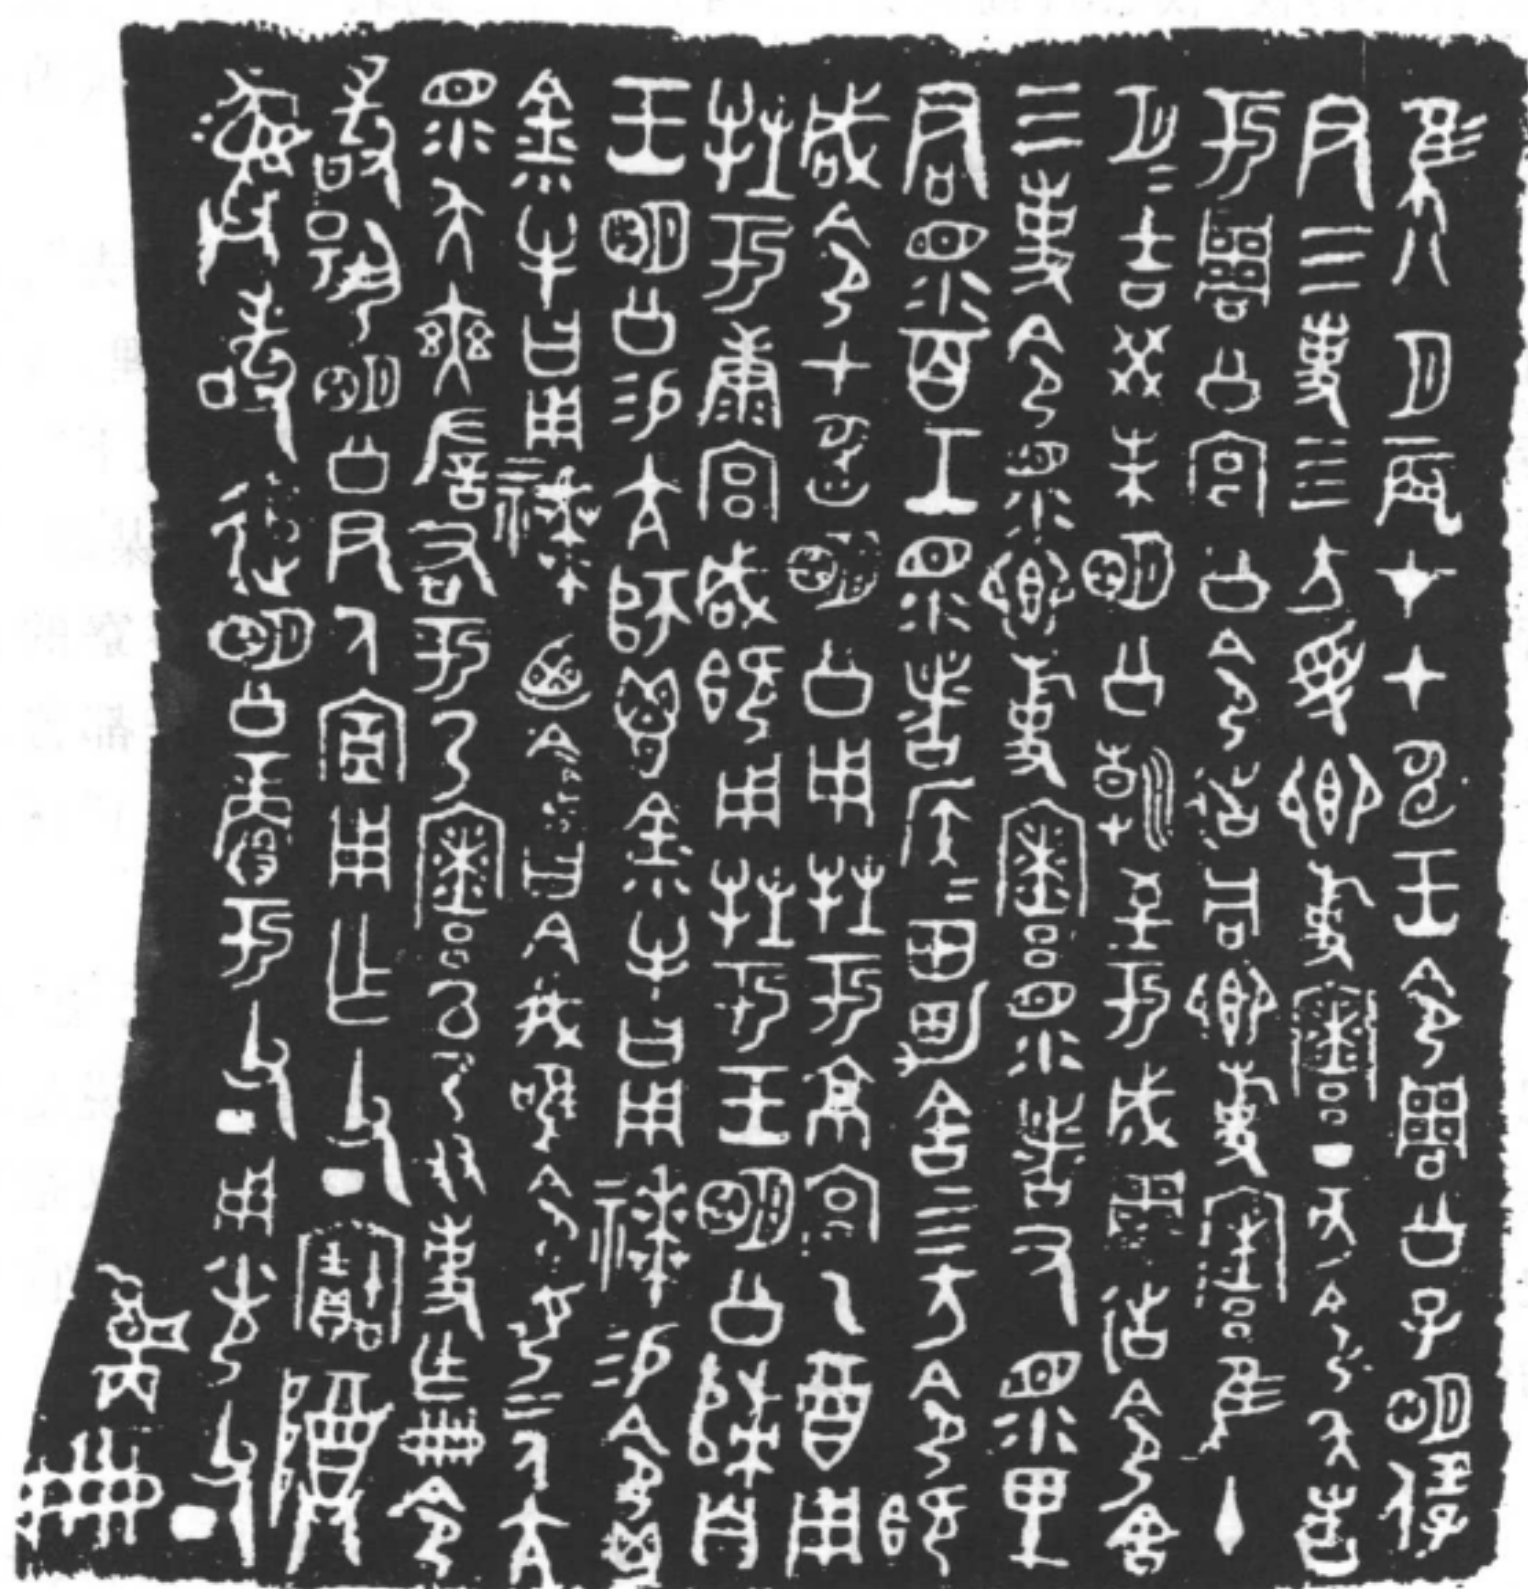 隹八月辰才甲申王令周公子明保
尹三事四方受卿事寮丁亥令夨告
于周公宮公令徣同卿事寮隹十
月=吉癸未明公朝至于成周徣令舍
三事令眔卿事寮眔者尹眔里
君眔百工眔者侯=田男舍四方令既
咸令甲申明公用牲于京宮乙酉用
牲于康宮咸既用牲于王明公歸自
王明公易亢師鬯金小牛曰用𥛱易令鬯
金小牛曰用𥛱廼令曰今我唯令女二人亢
眔夨奭左右于乃寮以乃友事乍冊令
敢揚明公尹氒宣用乍父丁寶尊
彝敢追明公賞于父丁用光父丁
雋冊